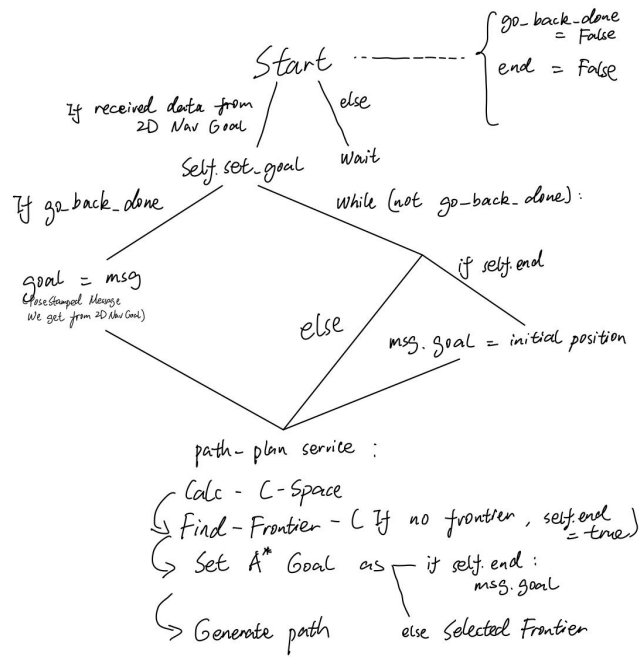 go_back_done
= False
Start
end = False
If received data from
2D Nav Goal
else
Self.set_goal
wait
If go_back_done
while (not go_back_done):
if self.end
goal = msg
(PoseStamped Message
We get from 2D Nav Goal)
else
msg.goal = initial position
path-plan service :
Calc - C-Space
Find-Frontier - ( If no frontier, self.end
= true)
Set A* Goal as
if self.end :
msg.goal
Generate path
else Selected Frontier